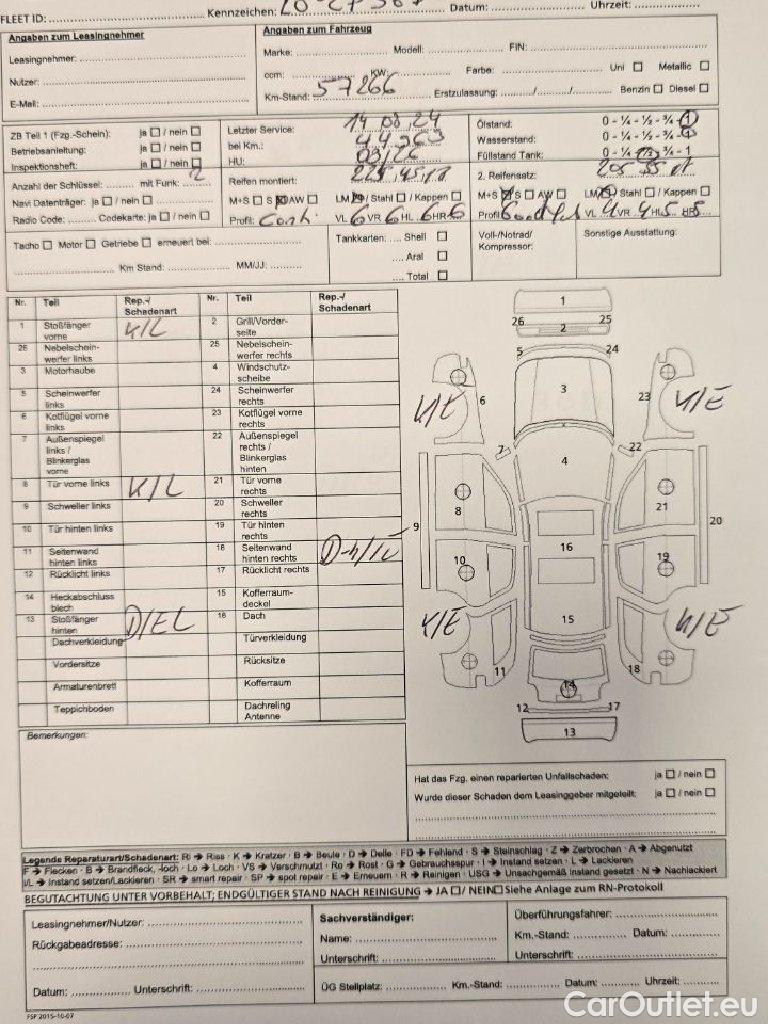 FLEET ID: Kennzeichen: Datum: Uhrzeit:
Angaben zum Leasingnehmer
Leasingnehmer:
Nutzer:
E-Mail:
Angaben zum Fahrzeug
Marke: Modell: FIN:
ccm: KW: Farbe: Uni Metallic
Km-Stand: 57266 Erstzulassung: / / Benzin Diesel
ZB Teil 1 (Fzg.-Schein): ja / nein
Betriebsanleitung: ja / nein
Inspektionsheft: ja / nein
Letzter Service: 14.08.24
bei Km.: 44263
HU: 03.26
Ölstand: 0 - ¼ - ½ - ¾ - 1
Wasserstand: 0 - ¼ - ½ - ¾ - 1
Füllstand Tank: 0 - ¼ - ½ - ¾ - 1
Anzahl der Schlüssel: mit Funk: 2
Navi Datenträger: ja / nein
Radio Code: Codekarte: ja / nein
Reifen montiert: 225, 45, 18
M+S S AW LM / Stahl / Kappen
Profil: Conti VL 6 VR 6 HL 6 HR 6
2. Reifensatz: 205 55
M+S S AW LM / Stahl / Kappen
Profil VL 4 VR 4 HL 5 HR 5
Tacho Motor Getriebe erneuert bei:
Km Stand: MM/JJ:
Tankkarten: Shell
Aral
Total
Voll-/Notrad/
Kompressor:
Sonstige Ausstattung:
Nr. Teil Rep.-/ Schadenart Nr. Teil Rep.-/ Schadenart
1 Stoßfänger vorne K/L 2 Grill/Vorder-seite
26 Nebelschein-werfer links 25 Nebelschein-werfer rechts
3 Motorhaube 4 Windschutz-scheibe
5 Scheinwerfer links 24 Scheinwerfer rechts
6 Kotflügel vorne links 23 Kotflügel vorne rechts
7 Außenspiegel links / Blinkerglas vorne 22 Außenspiegel rechts / Blinkerglas hinten
8 Tür vorne links K/L 21 Tür vorne rechts
9 Schweller links 20 Schweller rechts
10 Tür hinten links 19 Tür hinten rechts
11 Seitenwand hinten links 18 Seitenwand hinten rechts
12 Rücklicht links 17 Rücklicht rechts
14 Heckabschluss blech 15 Kofferraum-deckel
13 Stoßfänger hinten D/EL 16 Dach
Dachverkleidung Türverkleidung
Vordersitze Rücksitze
Armaturenbrett Kofferraum
Teppichboden Dachreling Antenne
1
26 25
2
5 24
3
K/E 6 23 K/E
7 22
4
8 21
9 20
10 16 19
15
K/E K/E
11 14 18
12 17
13
Bemerkungen:
Hat das Fzg. einen reparierten Unfallschaden: ja / nein
Wurde dieser Schaden dem Leasinggeber mitgeteilt: ja / nein
Legende Reparaturart/Schadenart: Ri → Riss · K → Kratzer · B → Beule · D → Delle · FD → Fehlend · S → Steinschlag · Z → Zerbrochen · A → Abgenutzt
F → Flecken · B → Brandfleck, -loch · Lo → Loch · VS → Verschmutzt · Ro → Rost · G → Gebrauchsspur · I → Instand setzen · L → Lackieren
I/L → Instand setzen/Lackieren · SR → smart repair · SP → spot repair · E → Erneuern · R → Reinigen · USG → Unsachgemäß instand gesetzt · N → Nachlackiert
BEGUTACHTUNG UNTER VORBEHALT; ENDGÜLTIGER STAND NACH REINIGUNG → JA / NEIN Siehe Anlage zum RN-Protokoll
Leasingnehmer/Nutzer:
Rückgabeadresse:
Datum: Unterschrift:
Sachverständiger:
Name:
Unterschrift:
Überführungsfahrer:
Km.-Stand: Datum:
Unterschrift:
ÜG Stellplatz: Km.-Stand: Datum: Uhrzeit:
FSP 2015-10-07
CarOutlet.eu